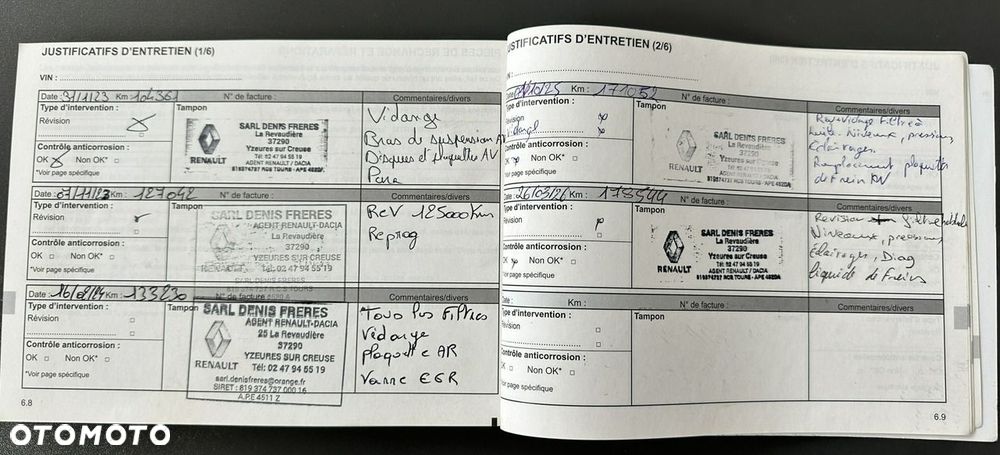 JUSTIFICATIFS D'ENTRETIEN (1/6)
VIN :
Date : 31/1/23 Km : 104361 N° de facture : Commentaires/divers
Type d'intervention : Tampon
Révision
SARL DENIS FRERES
La Revaudière
37290
Yzeures sur Creuse
Tél: 02 47 94 55 19
AGENT RENAULT / DACIA
RENAULT
Vidange
Bras de suspension AV
Disques et plaquettes AV
Para
Contrôle anticorrosion :
OK Non OK*
*Voir page spécifique
Date : 07/11/23 Km : 127042 N° de facture : Commentaires/divers
Type d'intervention : Tampon
Révision
SARL DENIS FRERES
AGENT RENAULT-DACIA
La Revaudière
37290
YZEURES SUR CREUSE
RENAULT Tél: 02 47 94 55 19
Rev 125000 Km
Reprog
Contrôle anticorrosion :
OK Non OK*
*Voir page spécifique
Date : 16/08/24 Km : 133230 Commentaires/divers
Type d'intervention : Tampon
Révision
SARL DENIS FRERES
AGENT RENAULT-DACIA
25 La Revaudière
37290
YZEURES SUR CREUSE
RENAULT Tél: 02 47 94 55 19
sarl.denisfreres@orange.fr
SIRET : 819 374 737 000 16
A.P.E 4511 Z
Tous les filtres
Vidange
plaquette AR
Vanne EGR
Contrôle anticorrosion :
OK Non OK*
*Voir page spécifique
6.8
JUSTIFICATIFS D'ENTRETIEN (2/6)
VIN :
Km : 171052 N° de facture : Commentaires/divers
Type d'intervention : Tampon
Révision
Vidange
SARL DENIS FRERES
La Revaudière
37290
Yzeures sur Creuse
Tél: 02 47 94 55 19
AGENT RENAULT / DACIA
RENAULT
Niveaux, pression
Eclairages
Remplacement plaquettes
de Frein AV
Contrôle anticorrosion :
OK Non OK*
*Voir page spécifique
Date : 26/03/26 Km : N° de facture : Commentaires/divers
Type d'intervention : Tampon
Révision
SARL DENIS FRERES
La Revaudière
37290
Yzeures sur Creuse
Tél: 02 47 94 55 19
AGENT RENAULT / DACIA
RENAULT
Revision
Niveaux, pression
Eclairages, Diag
liquide de Freins
Contrôle anticorrosion :
OK Non OK*
*Voir page spécifique
Date : Km : N° de facture : Commentaires/divers
Type d'intervention : Tampon
Révision
Contrôle anticorrosion :
OK Non OK*
*Voir page spécifique
6.9
OTOMOTO